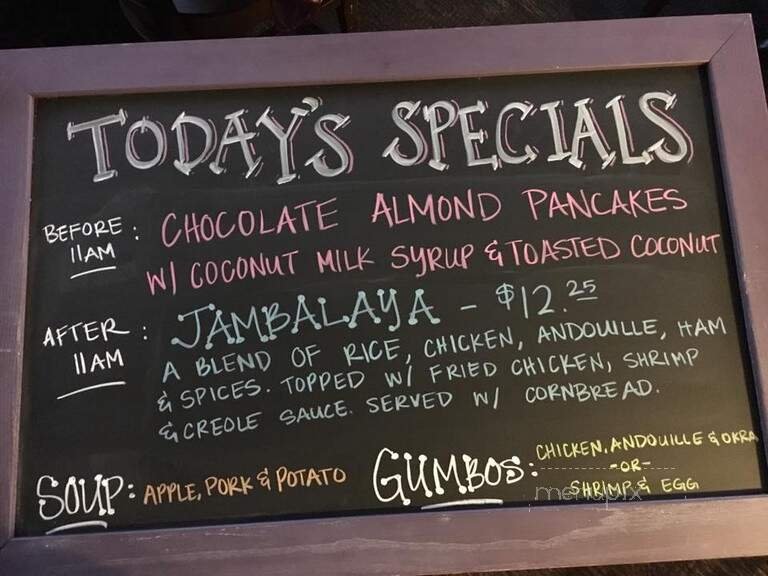 TODAY'S SPECIALS
BEFORE 11AM : CHOCOLATE ALMOND PANCAKES
W/ COCONUT MILK SYRUP & TOASTED COCONUT
AFTER 11AM : JAMBALAYA - $12.25
A BLEND OF RICE, CHICKEN, ANDOUILLE, HAM
& SPICES. TOPPED W/ FRIED CHICKEN, SHRIMP
& CREOLE SAUCE. SERVED W/ CORNBREAD.
SOUP: APPLE, PORK & POTATO
GUMBOS: CHICKEN, ANDOUILLE & OKRA
-OR-
SHRIMP & EGG
menupix